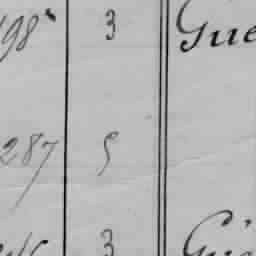 198 3 Gue
287 5
3 Gui